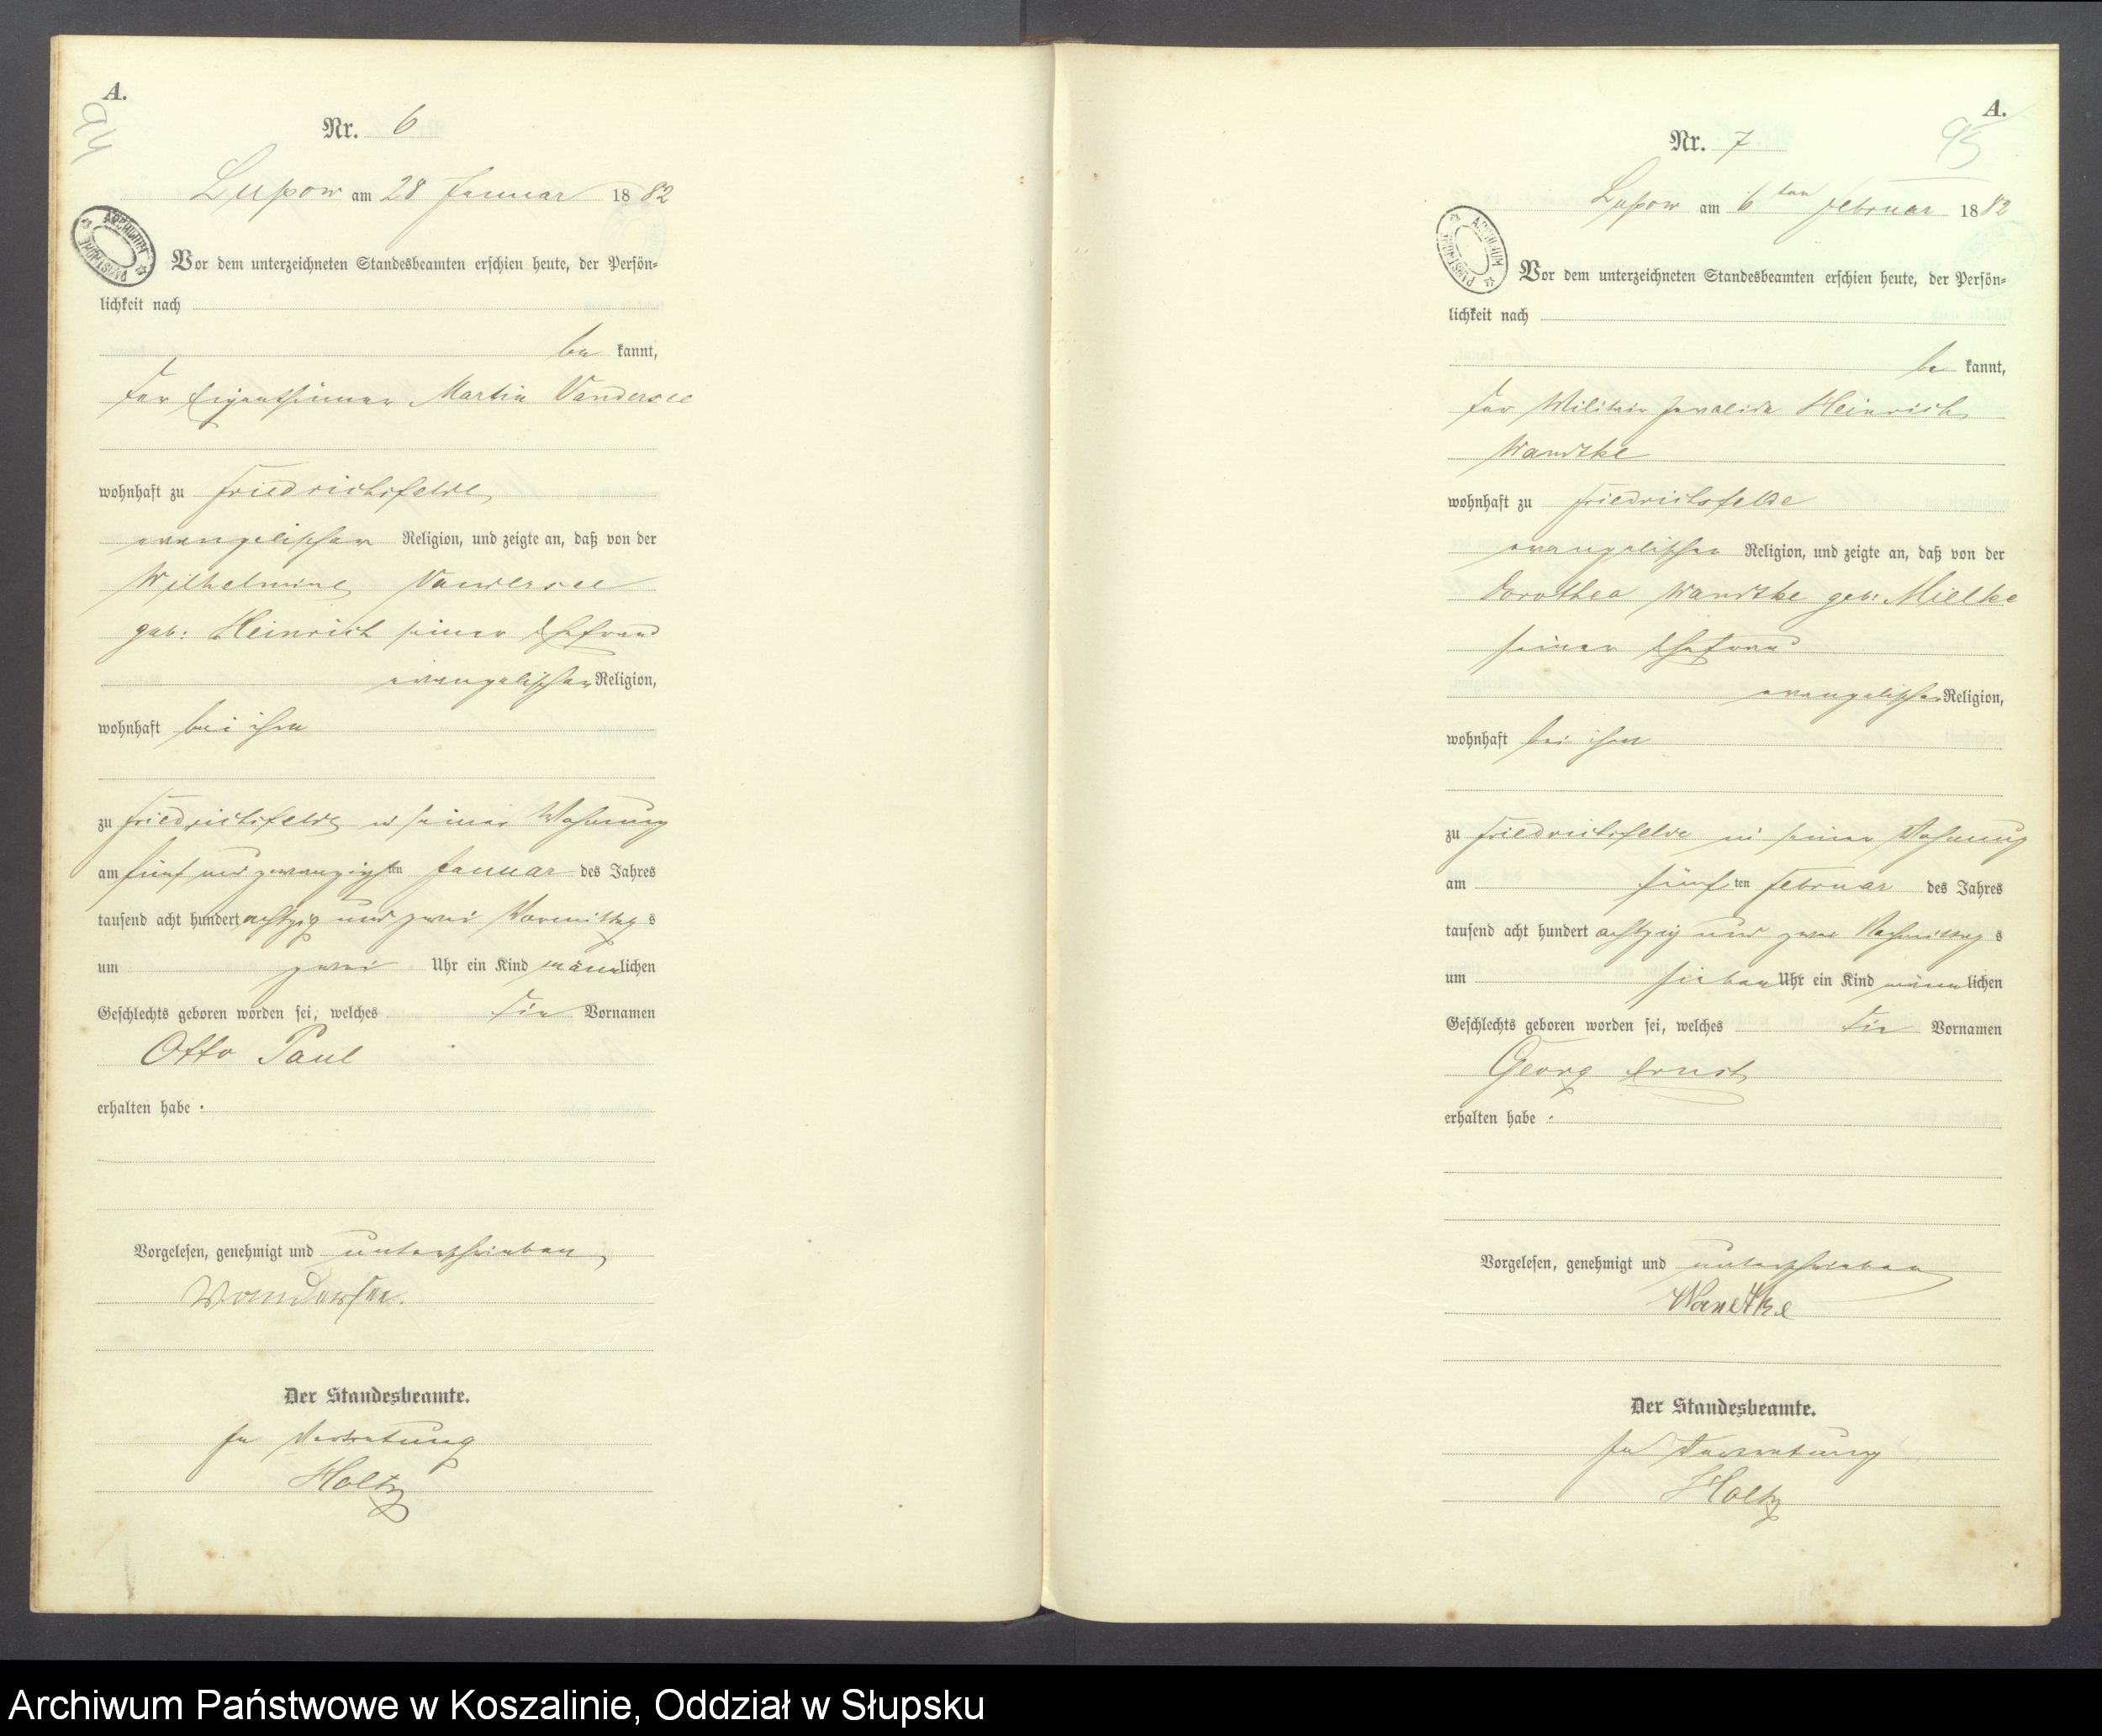 A.
94
Nr. 6
Lupow am 28 Januar 1882
ARCHIWUM PAŃSTWOWE
Vor dem unterzeichneten Standesbeamten erschien heute, der Persön-
lichkeit nach
be kannt,
der Eigenthümer Martin Vandersee
wohnhaft zu Friedrichsfelde
evangelischer Religion, und zeigte an, daß von der
Wilhelmine Vandersee
geb: Heinrich seiner Ehefrau
evangelischer Religion,
wohnhaft bei ihm
zu Friedrichsfelde in seiner Wohnung
am fünf und zwanzigsten Januar des Jahres
tausend acht hundert achtzig und zwei Vormittags
um zwei Uhr ein Kind männlichen
Geschlechts geboren worden sei, welches die Vornamen
Otto Paul
erhalten habe.
Vorgelesen, genehmigt und unterschrieben
Wandersee.
Der Standesbeamte.
In Vertretung
Holtz
A.
95
Nr. 7
Lupow am 6ten Februar 1882
ARCHIWUM PAŃSTWOWE
Vor dem unterzeichneten Standesbeamten erschien heute, der Persön-
lichkeit nach
be kannt,
der Militair Invalide Heinrich
Wandtke
wohnhaft zu Friedrichsfelde
evangelischer Religion, und zeigte an, daß von der
Dorothea Wandtke geb: Mielke
seiner Ehefrau
evangelischer Religion,
wohnhaft bei ihm
zu Friedrichsfelde in seiner Wohnung
am fünften Februar des Jahres
tausend acht hundert achtzig und zwei Nachmittags
um sieben Uhr ein Kind männlichen
Geschlechts geboren worden sei, welches die Vornamen
Georg Ernst
erhalten habe.
Vorgelesen, genehmigt und unterschrieben
Wandtke
Der Standesbeamte.
In Vertretung
Holtz
Archiwum Państwowe w Koszalinie, Oddział w Słupsku